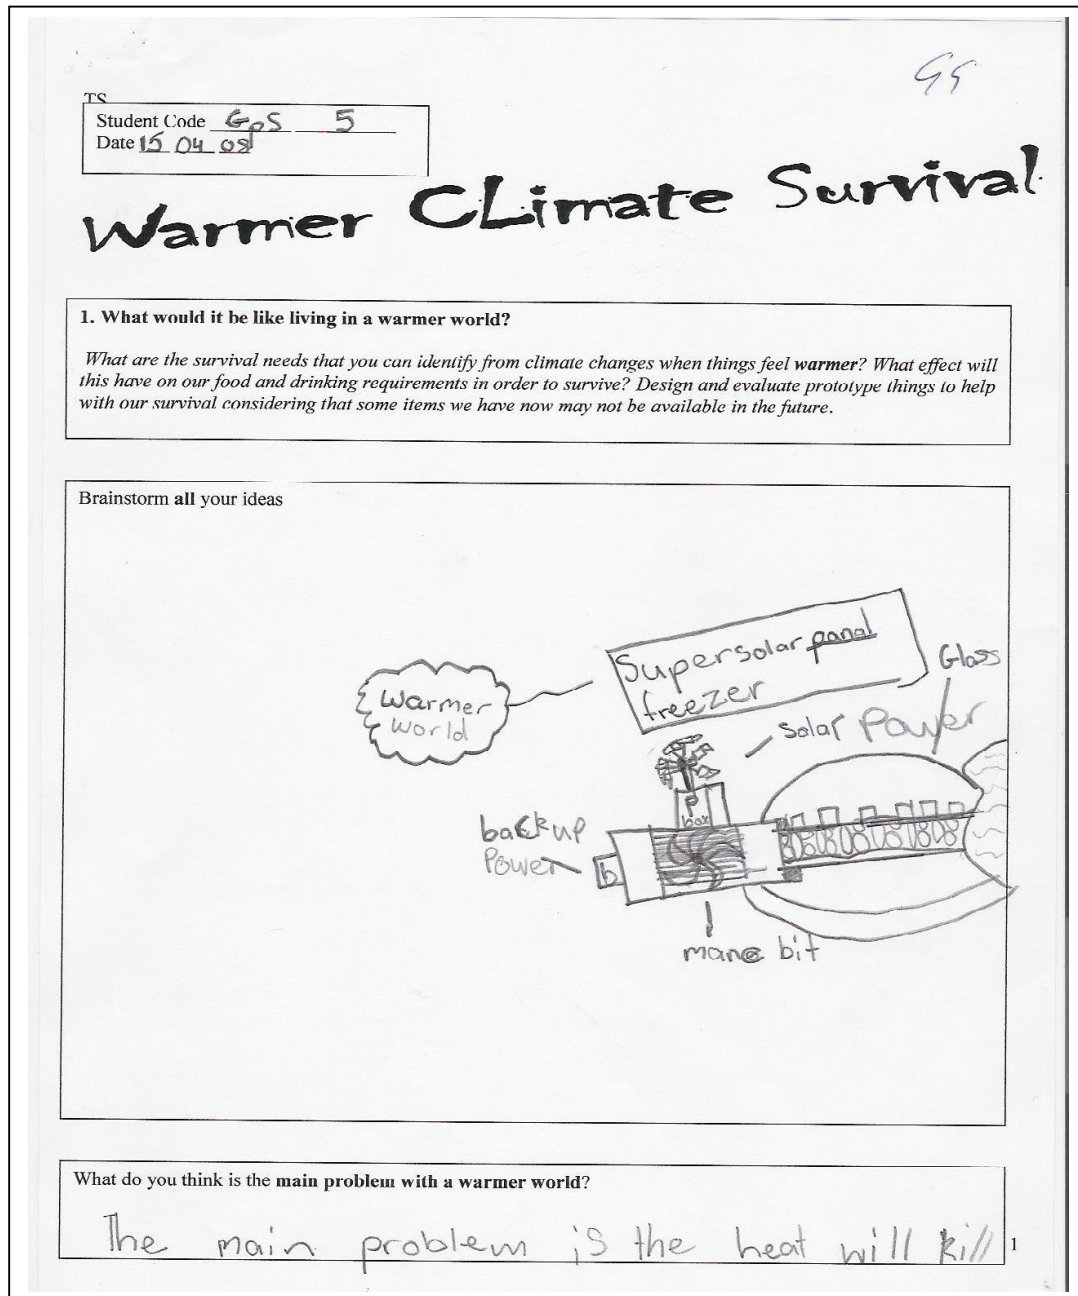 G5
TS
Student Code GPS 5
Date 15 04 09
Warmer CLimate Survival
1. What would it be like living in a warmer world?
What are the survival needs that you can identify from climate changes when things feel warmer? What effect will
this have on our food and drinking requirements in order to survive? Design and evaluate prototype things to help
with our survival considering that some items we have now may not be available in the future.
Brainstorm all your ideas
Warmer
World
Supersolar panal
freezer
Glass
Solar Power
P
box
backup
Power
b
mane bit
What do you think is the main problem with a warmer world?
The main problem is the heat will kill
1